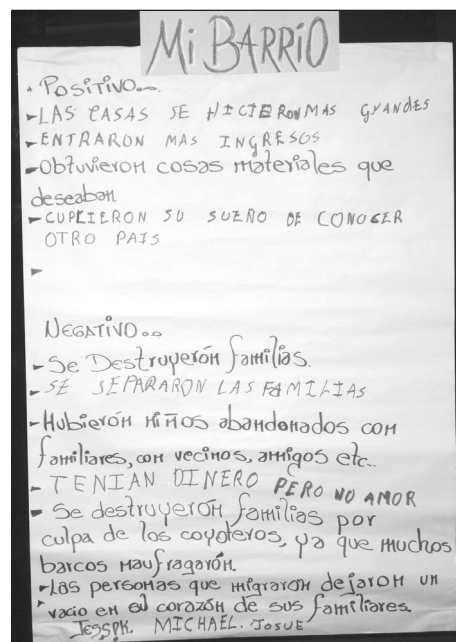 Mi BARRiO
• POSiTiVO...
- LAS CASAS SE HICIERON MAS GrANDES
- ENTRARON MAS INGRESOS
- Obtuvieron cosas materiales que
deseaban
- CUPLIERON SU SUEÑO DE CONOCER
OTRO PAIS
-
NEGATiVO...
- Se Destruyerón familias.
- SE SEPARARON LAS FAMILIAS
- Hubierón niños abandonados con
familiares, con vecinos, amigos etc..
- TENIAN DINERO PERO NO AMOR
- Se destruyerón familias por
culpa de los coyoteros, ya que muchos
barcos naufragarón.
- Las personas que migrarón dejarón un
vacio en su corazón de sus familiares.
MICHAEL. JOSUE